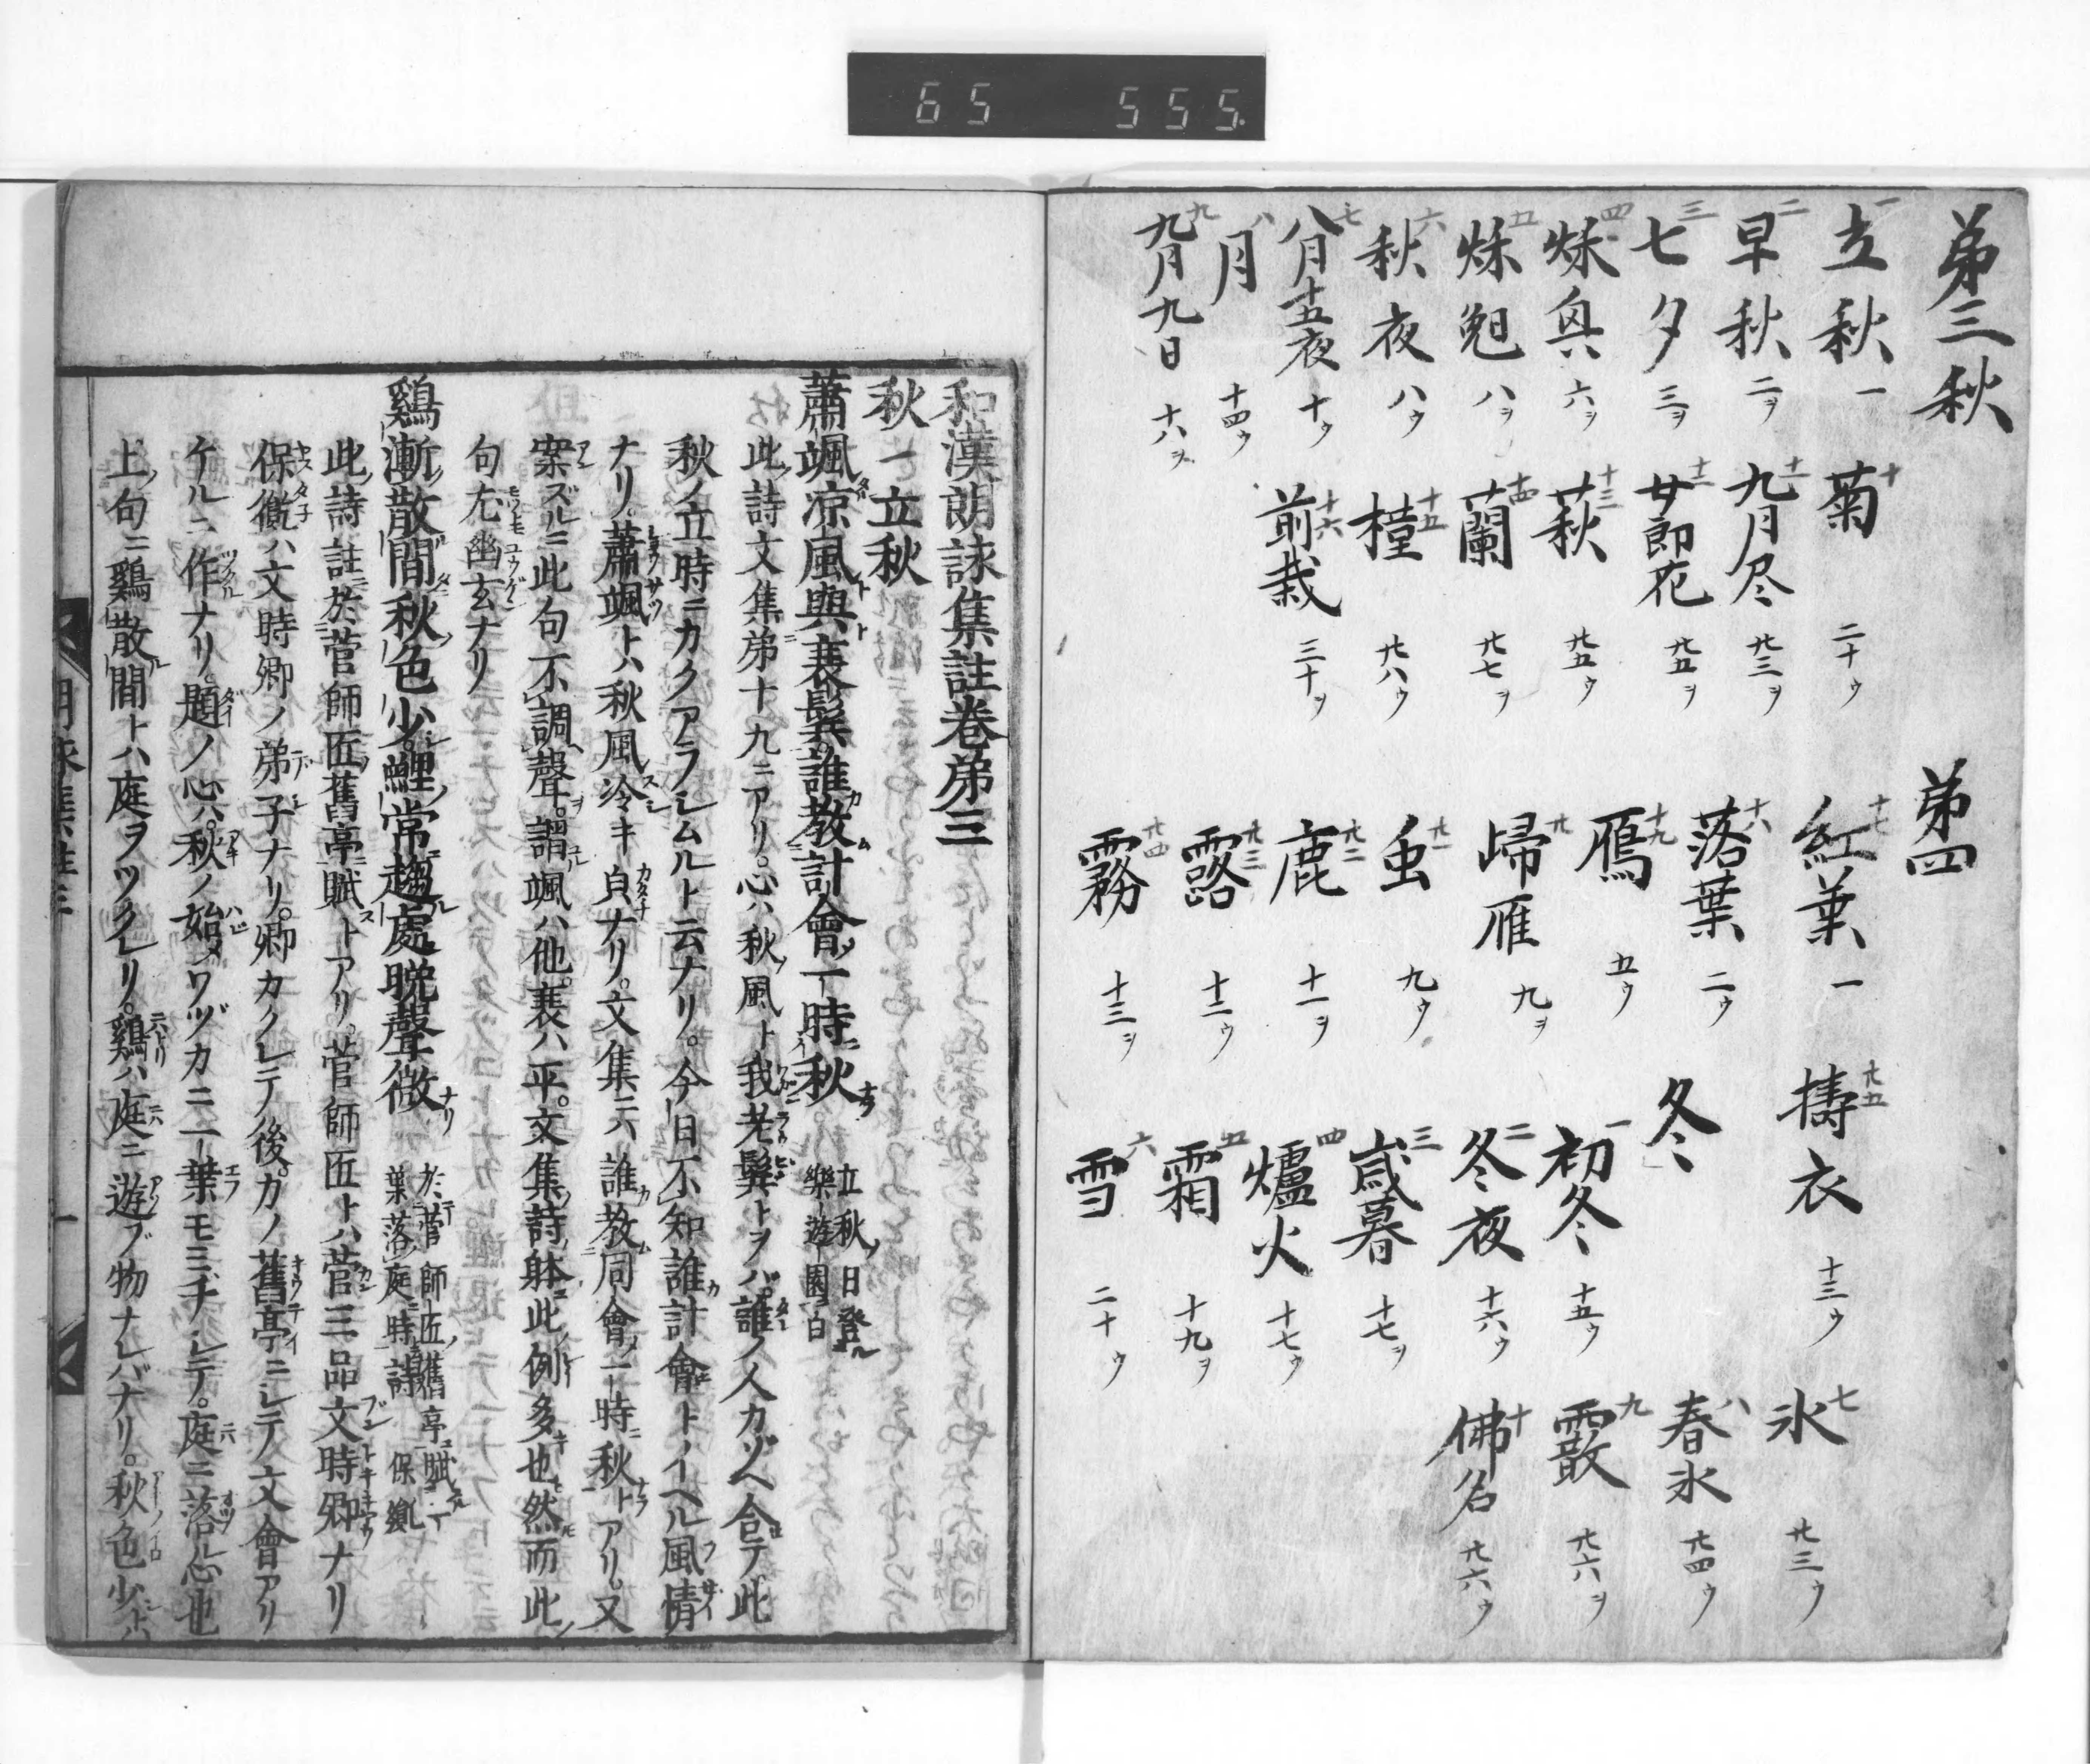 65 555.
第三秋
一 立秋 一
二 早秋 二ヲ
三 七夕 三ヲ
四 秌興 六ヲ
五 秌晩 八ヲ
六 秋夜 八ウ
七 八月十五夜 十ウ
八 月 十四ウ
九 九月九日 十八ヲ
十 菊 二十ウ
十一 九月尽 廿三ヲ
十二 女郎花 廿五ヲ
十三 萩 廿五ウ
十四 蘭 廿七ヲ
十五 槿 廿八ウ
十六 前栽 三十ヲ
第四
十七 紅葉 一
十八 落葉 二ウ
十九 鴈 五ウ
廿 帰雁 九ヲ
廿一 虫 九ウ
廿二 鹿 十一ヲ
廿三 露 十二ウ
廿四 霧 十三ヲ
廿五 擣衣 十三ウ
冬
一 初冬 十五ウ
二 冬夜 十六ウ
三 歳暮 十七ヲ
四 爐火 十七ウ
五 霜 十九ヲ
六 雪 二十ウ
七 氷 廿三ウ
八 春氷 廿四ウ
九 霰 廿六ヲ
十 佛名 廿六ウ
和漢朗詠集註巻第三
秋 立秋
蕭颯凉風與衰鬢誰教計會一時秋 立秋日登樂遊園 白
此詩文集第十九ニアリ。心ハ秋風ト我老鬢トヲバ。誰ノ人カゾヘ合テ此
秋ノ立時ニカクアラシムルト云ナリ。今日不知誰計會トイヘル風情
ナリ。蕭颯トハ秋風冷キ皃ナリ。文集ニハ誰教同會一時秋トアリ。又
案ズルニ此句不調聲。謂颯ハ他。衰ハ平。文集詩躰此例多也然而此
句尤幽玄ナリ
鷄漸散間秋色少。鯉常趨處晩聲微 於菅師匠舊亭賦一葉落庭時詩 保胤
此詩註於菅師匠舊亭賦トアリ。菅師匠トハ菅三品文時卿ナリ
保胤ハ文時卿ノ弟子ナリ。卿カクレテ後。カノ舊亭ニシテ文會アリ
ケルニ作ナリ。題ノ心ハ。秋ノ始メワヅカニ一葉モミヂシテ。庭ニ落ル心也
上句ニ鷄散間トハ庭ヲツクレリ。鷄ハ庭ニ遊ブ物ナレバナリ。秋色少トハ